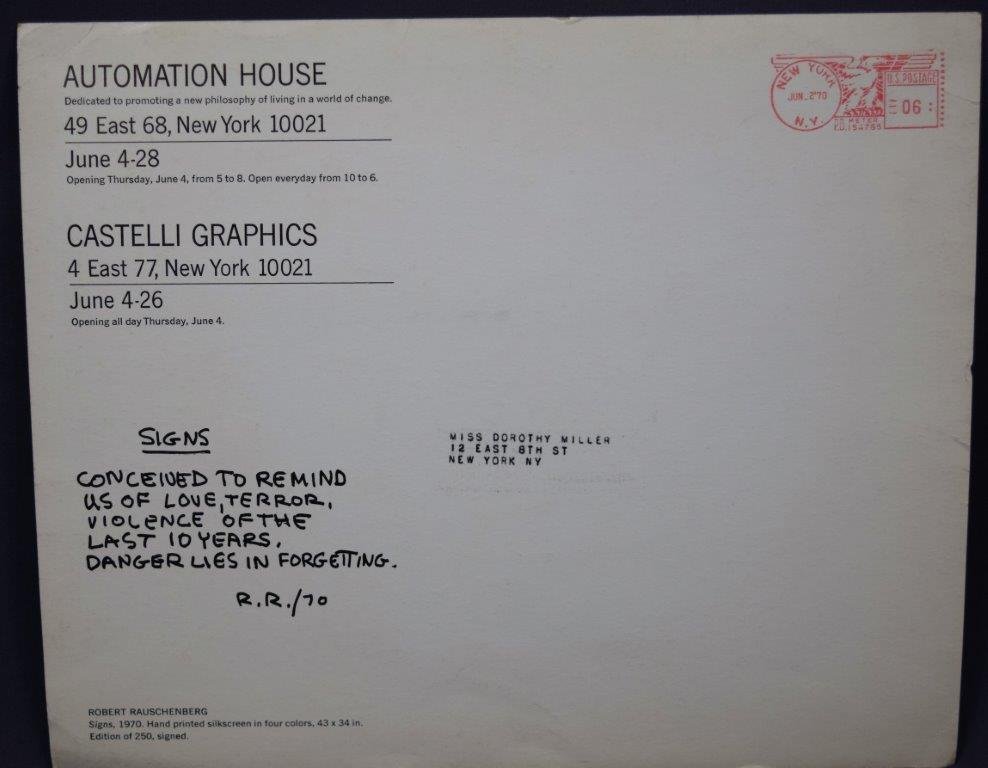 AUTOMATION HOUSE
Dedicated to promoting a new philosophy of living in a world of change.
49 East 68, New York 10021
June 4-28
Opening Thursday, June 4, from 5 to 8. Open everyday from 10 to 6.
CASTELLI GRAPHICS
4 East 77, New York 10021
June 4-26
Opening all day Thursday, June 4.
NEW YORK
JUN.-2'70
N.Y.
U.S. POSTAGE
06
P.B. METER
SIGNS
CONCEIVED TO REMIND
US OF LOVE, TERROR,
VIOLENCE OF THE
LAST 10 YEARS.
DANGER LIES IN FORGETTING.
R.R./70
MISS DOROTHY MILLER
12 EAST 8TH ST
NEW YORK NY
ROBERT RAUSCHENBERG
Signs, 1970. Hand printed silkscreen in four colors, 43 x 34 in.
Edition of 250, signed.